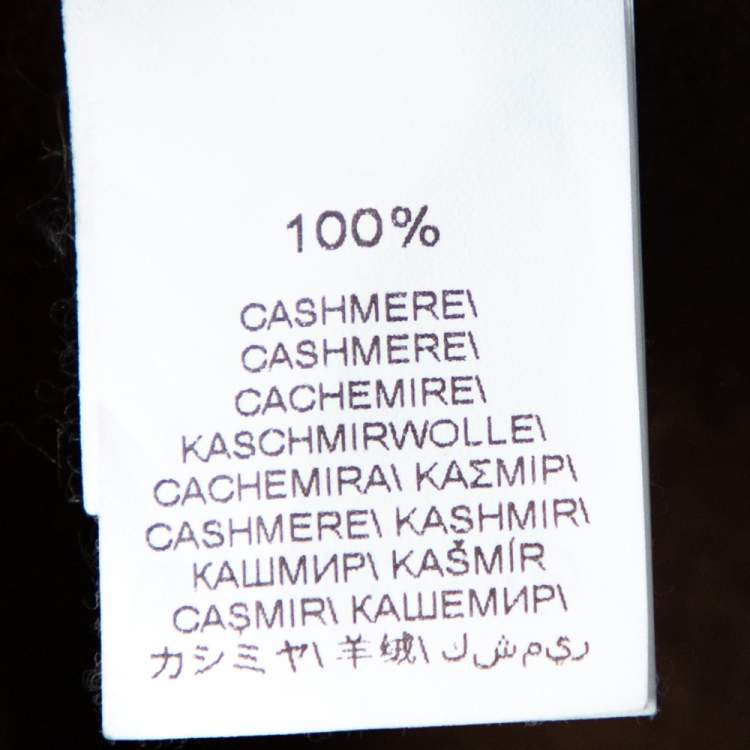 100%
CASHMERE\
CASHMERE\
CACHEMIRE\
KASCHMIRWOLLE\
CACHEMIRA\ ΚΑΣΜΙΡ\
CASHMERE\ KASHMIR\
КАШМИР\ KAŠMÍR
CAŞMIR\ КАШЕМИР\
カシミヤ\ 羊绒\ ك ش م ري